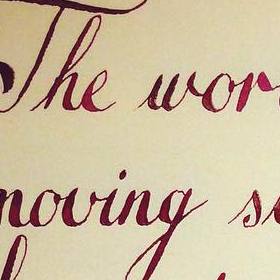 The wor
moving s